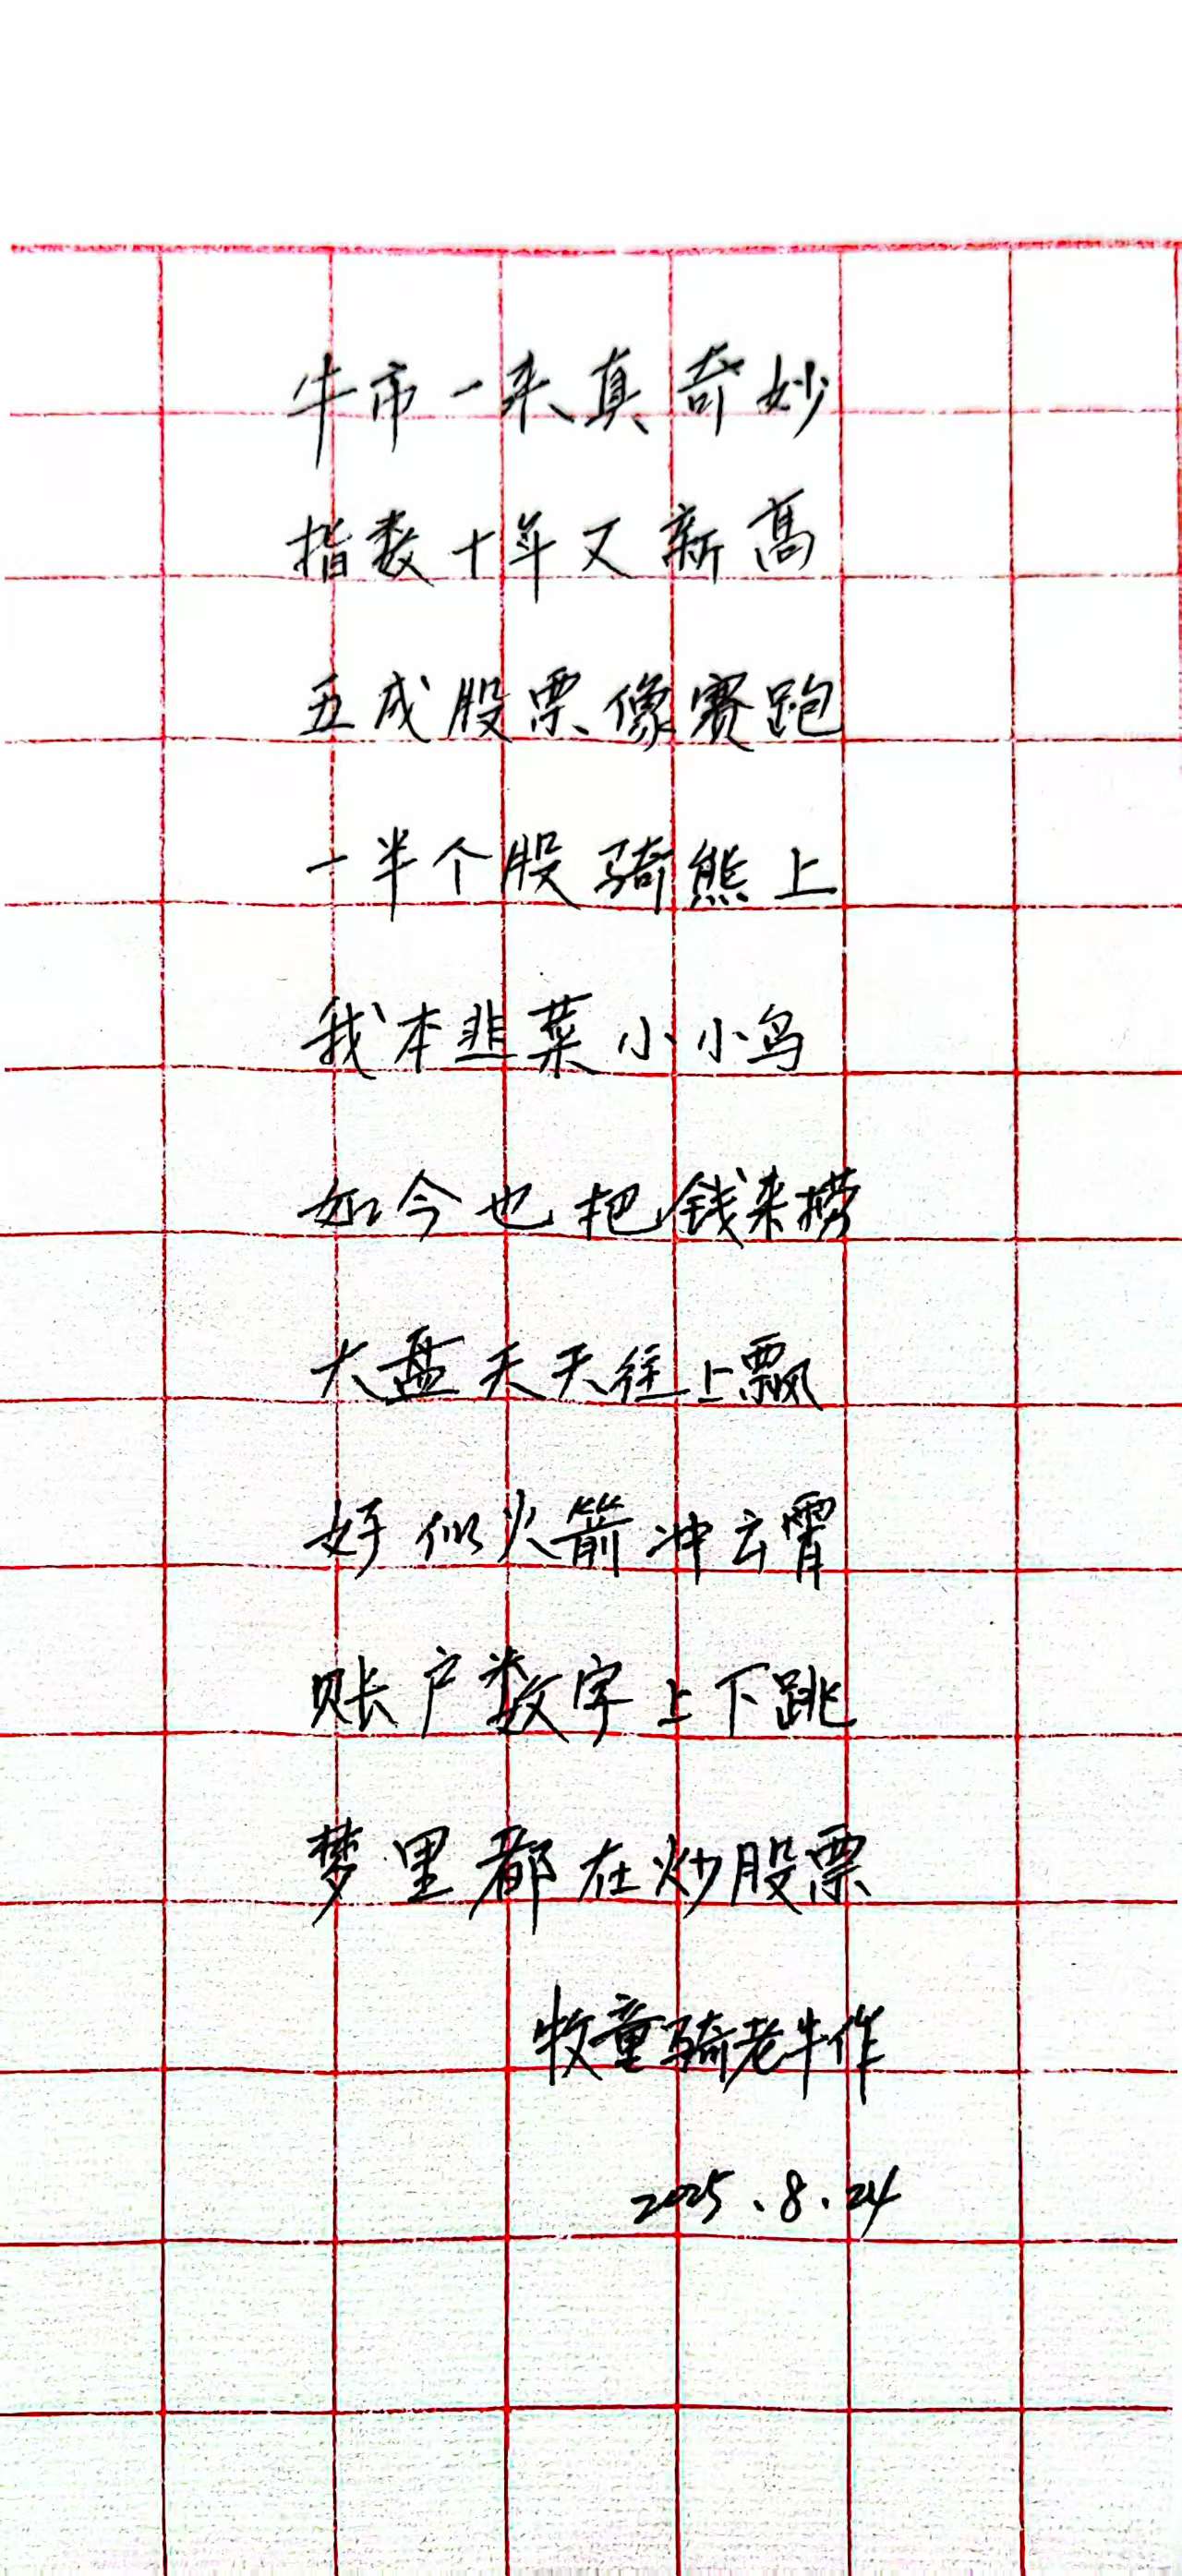 牛市一来真奇妙
指数十年又新高
五成股票像赛跑
一半个股骑熊上
我本韭菜小小鸟
如今也把钱来捞
大盘天天往上飘
好似火箭冲云霄
账户数字上下跳
梦里都在炒股票
牧童骑老牛作
2025.8.24